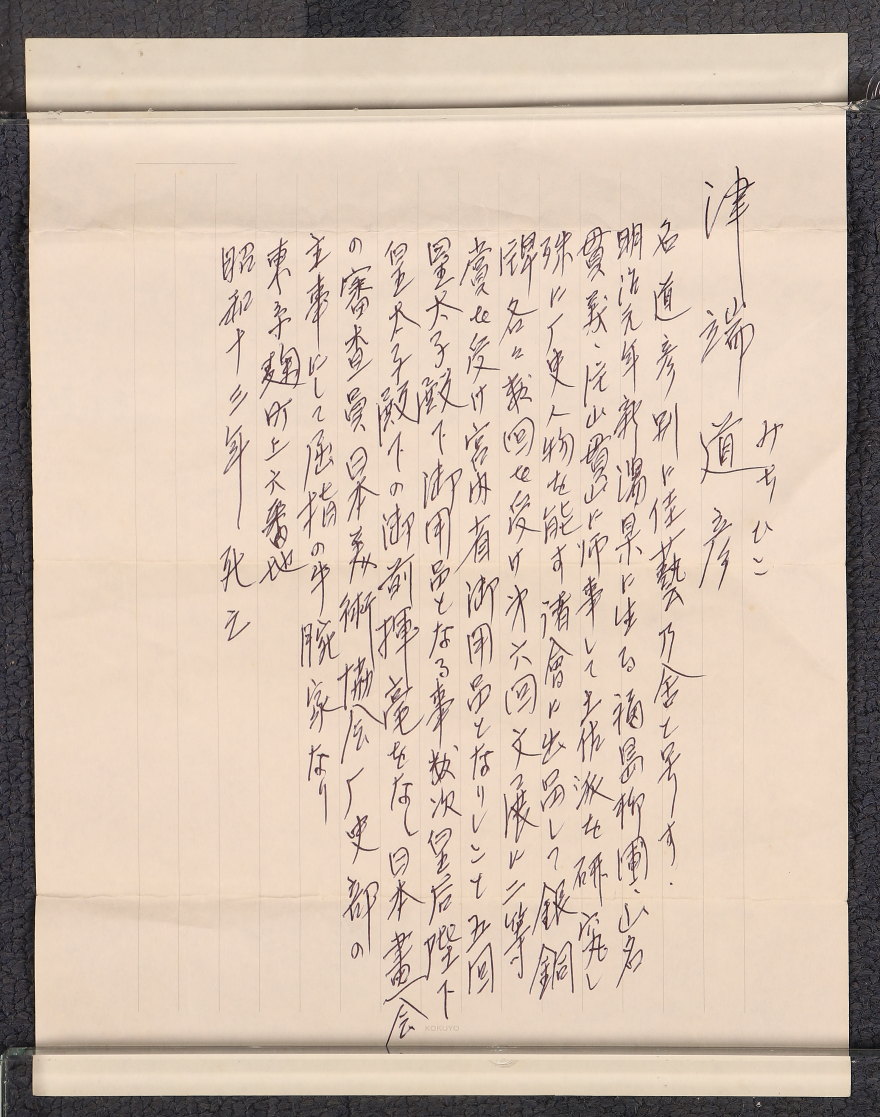 津端道彦
みちひこ
名道彦別に佳藝乃舍と号す.
明治元年新潟県に生る福島柳圃、山名
貫義、片山貫山に師事して土佐派を研究し
殊にㄏ史人物を能す諸會に出品して銀銅
牌各々数回を受け第六回文展に二等
賞を受け宮内省御用品となりしこと五回
皇太子殿下御用品となる事数次皇后陛下
皇太子殿下の御前揮毫をなし日本畫会
の審査員日本美術協会ㄏ史部の
主事にして屈指の手腕家なり
東京麹町上六番地
昭和十三年死亡
KOKUYO